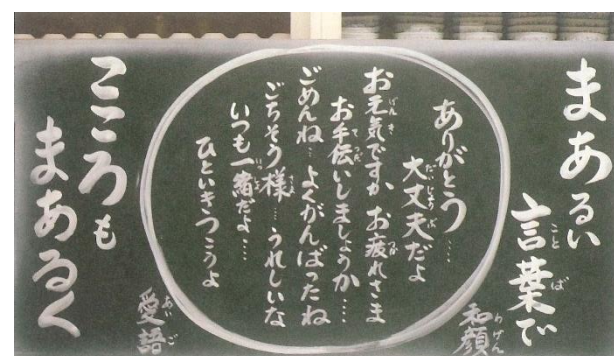 まあるい
言葉で
和顔
ありがとう……
大丈夫だよ
お元気ですか お疲れさま
お手伝いしましょうか……
ごめんね… よくがんばったね
ごちそう様… うれしいな
いつも一緒だよ…
ひといきつこうよ
愛語
こころも
まあるく